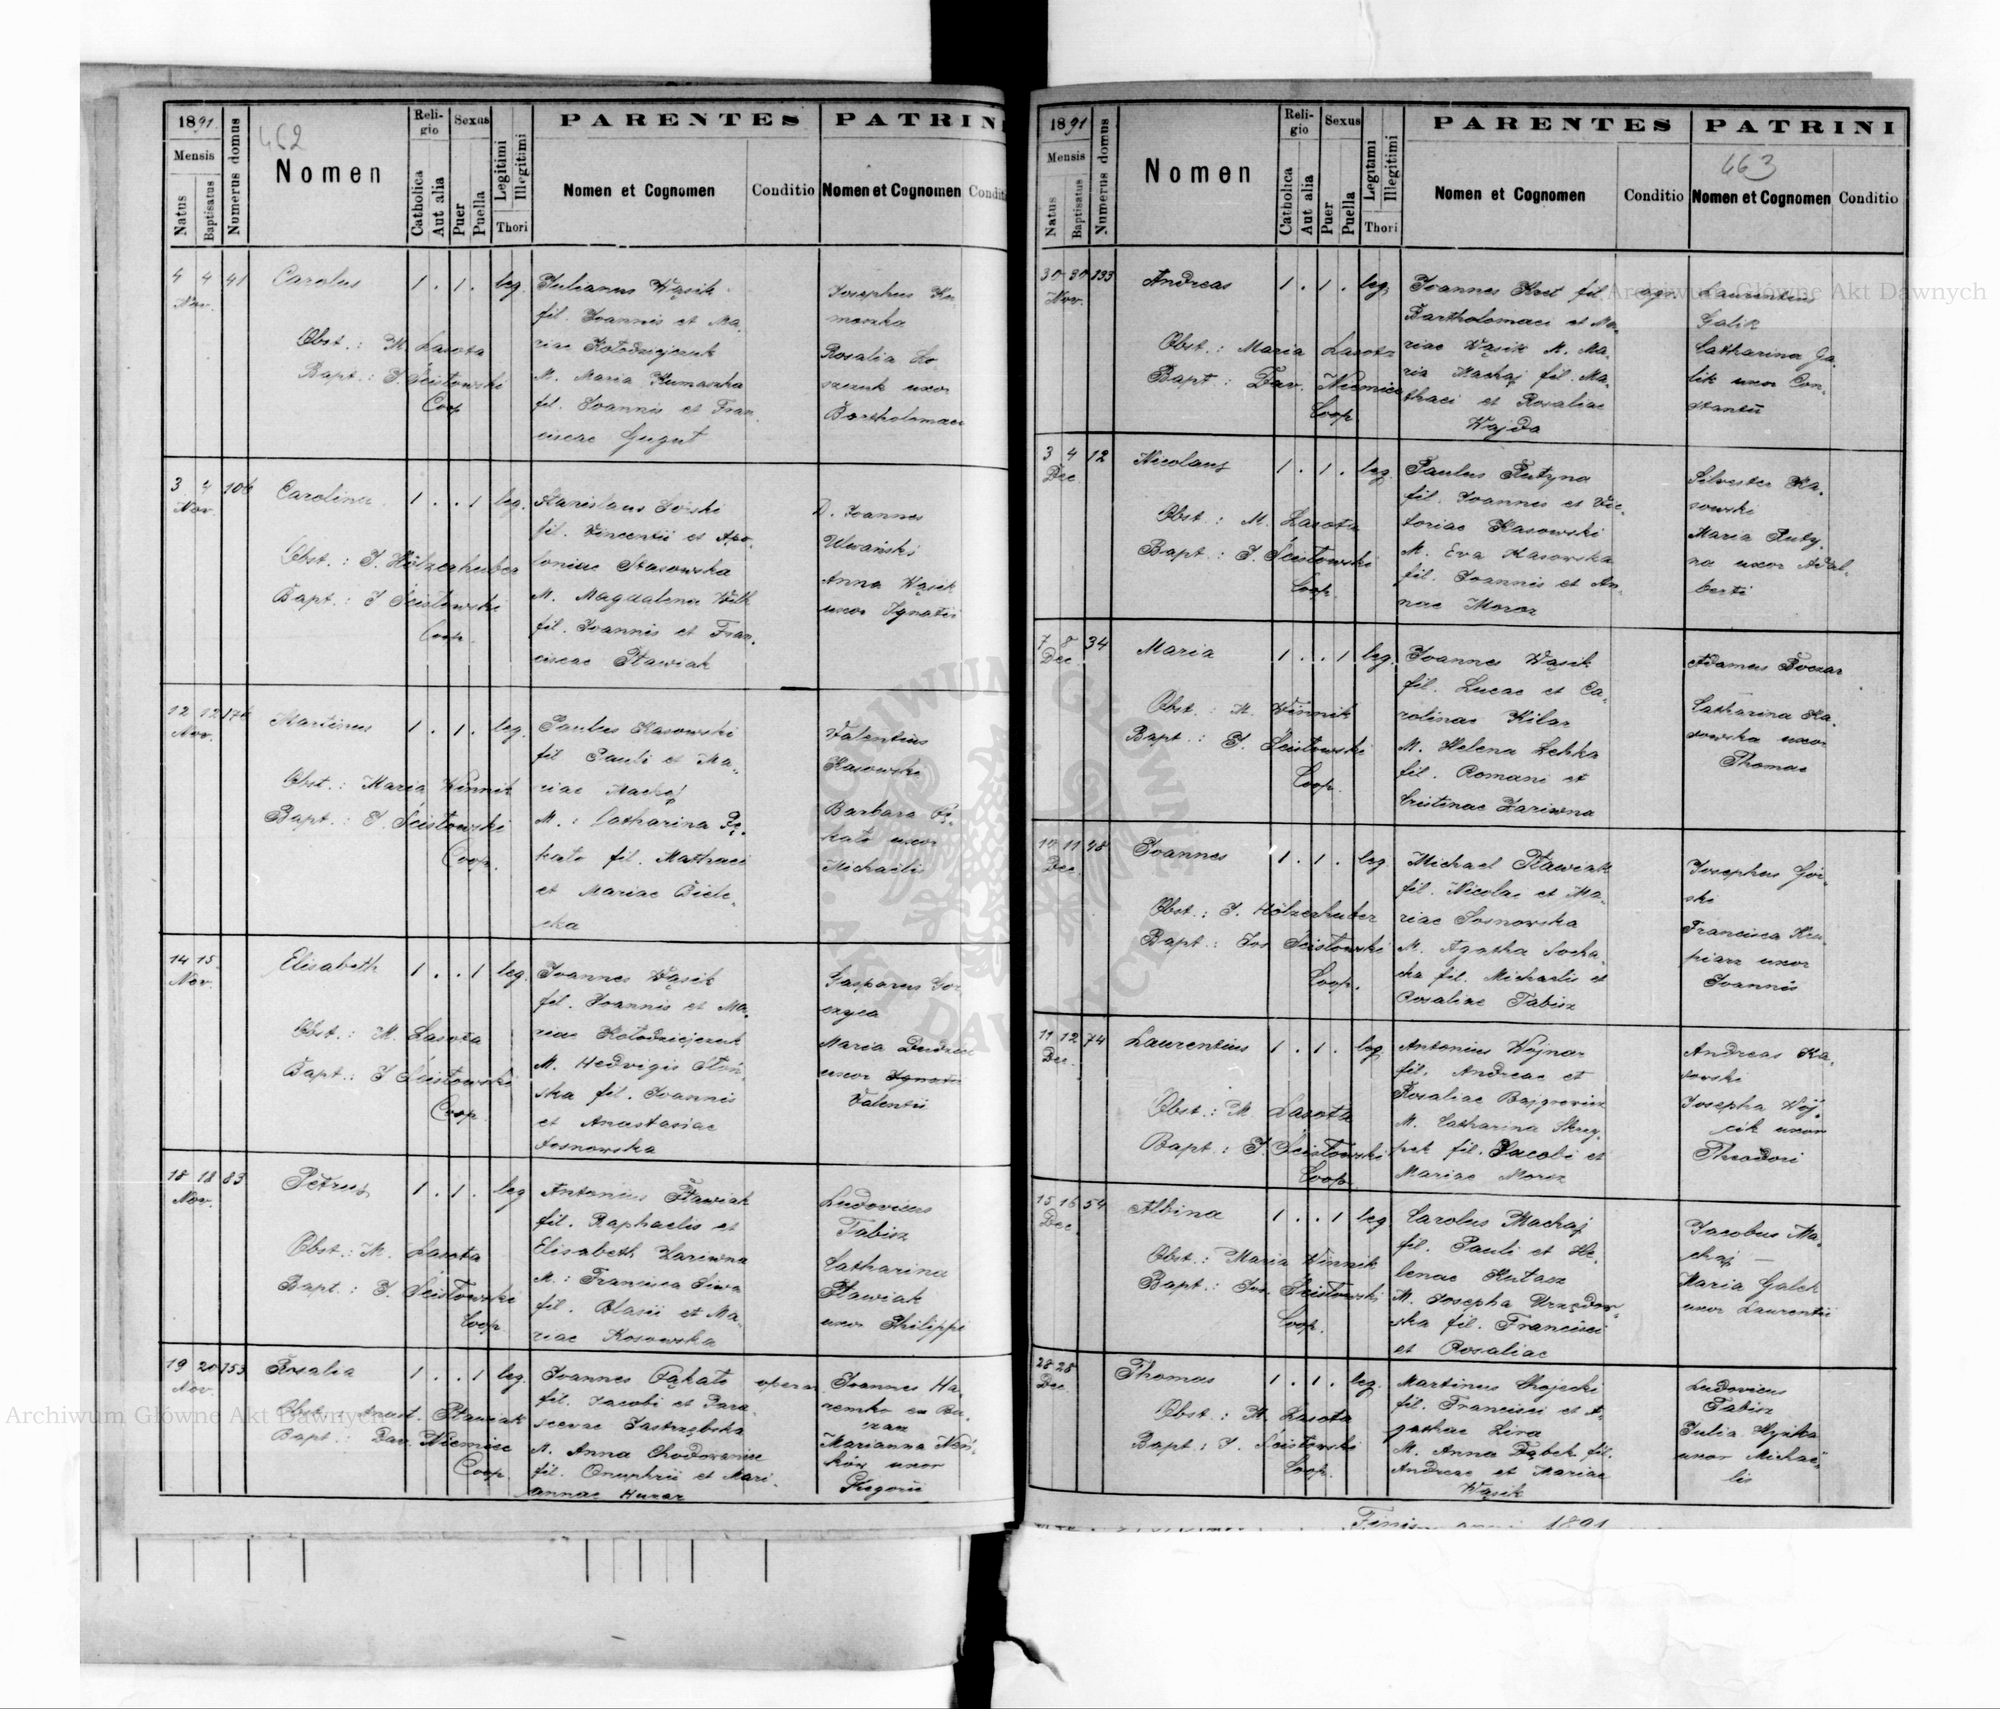 1891
462
Mensis
Natus
Baptisatus
Numerus domus
Nomen
Religio
Catholica
Aut alia
Sexus
Puer
Puella
Legitimi
Illegitimi
Thori
PARENTES
Nomen et Cognomen
Conditio
PATRIN
Nomen et Cognomen
Conditi
4 4 41
Nov.
Carolus
1 . 1 . leg.
Obst.: M. Lasota
Bapt.: J. Scisłowski
Coop
Julianus Wąsik
fil. Joannis et Ma-
riae Kołodziejczuk
M. Maria Kumaszka
fil. Joannis et Fran-
ciscae Gugut
Josephus Ku-
maszka
Rosalia
uxor
Bartholomaei
3 4 106
Nov.
Carolina
1 . . 1 leg.
Obst.: J. Hölzerhuber
Bapt.: J Scisłowski
Coop.
Stanislaus
fil. Vincentii et Apo-
loniae Stasowska
M. Magdalena Wilk
fil. Joannis et Fran-
ciscae Pławiak
D. Joannes
Ulwański
Anna Wąsik
uxor Ignatii
12 12 176
Nov.
Martinus
1 . 1 . leg.
Obst.: Maria Winnik
Bapt.: J. Scisłowski
Coop.
Paulus Kasowski
fil Pauli et Ma-
riae Machaj
M.: Catharina Pę-
kato fil. Mathaei
et Mariae Biele-
cka
Valentius
Kasowski
Barbara Pę-
kato uxor
Michaelis
14 15
Nov.
Elisabeth
1 . . 1 leg.
Obst.: M. Lasota
Bapt.: J Scisłowski
Coop
Joannes Wąsik
fil. Joannis et Ma-
riae Kołodziejczuk
M. Hedvigis Słoń-
ska fil. Joannis
et Anastasiae
Sosnowska
Gasparus Gor-
czyca
Maria
uxor Ignatii
Valentii
18 18 83
Nov.
Petrus
1 . 1 . leg
Obst.: M. Lasota
Bapt.: J. Scisłowski
Coop
Antonius Pławiak
fil. Raphaelis et
Elisabeth Zariwna
M.: Francisca Siwa
fil. Blasii et Ma-
riae Kosowska
Ludovicus
Tabisz
Catharina
Pławiak
uxor Philippi
19 20 153
Nov.
Rosalia
1 . . 1 leg.
Obst.: Anast. Pławiak
Bapt.: Dav. Niemiec
Coop.
Joannes Pąkato
fil. Jacobi et Para-
scevae Jastrzębska
M. Anna Chodowaniec
fil. Onuphrii et Mari-
annae Huzar
operar
Joannes Ha-
remko ex Bu-
czar
Marianna
uxor
Gregorii
1891
463
Mensis
Natus
Baptisatus
Numerus domus
Nomen
Religio
Catholica
Aut alia
Sexus
Puer
Puella
Legitumi
Illegitimi
Thori
PARENTES
Nomen et Cognomen
Conditio
PATRINI
Nomen et Cognomen
Conditio
30 30 133
Nov.
Andreas
1 . 1 . leg.
Obst.: Maria Lasota
Bapt: Dav. Niemiec
Coop.
Joannes Kret fil.
Bartholomaei et Ma-
riae Wąsik M. Ma-
ria Machaj fil. Ma-
thaei et Rosaliae
Wajda
agr.
Laurentius
Galik
Catharina Ga-
lik uxor Con-
stantii
3 4 12
Dec
Nicolaus
1 . 1 . leg
Obst.: M. Lasota
Bapt.: J. Scisłowski
Coop.
Paulus Putyna
fil. Joannis et Vic-
toriae Kasowski
M. Eva Kasowska
fil. Joannis et An-
nae Moroz
Silvester Ka-
sowski
Maria Puty-
na uxor Adal-
berti
7 8 34
Dec.
Maria
1 . . 1 leg.
Obst.: M. Winnik
Bapt.: J. Scisłowski
Coop.
Joannes Wąsik
fil. Lucae et Ca-
rolinae Kilar
M. Helena Lehka
fil. Romani et
Cristinae Zariwna
Adamus Boczar
Catharina Ka-
sowska uxor
Thomae
10 11 28
Dec.
Joannes
1 . 1 . leg
Obst.: J. Hölzerhuber
Bapt.: Jos Scisłowski
Coop.
Michael Pławiak
fil. Nicolai et Ma-
riae Sosnowska
M. Agatha Socha-
cka fil. Michaelis et
Rosaliae Tabisz
Josephus Gór-
ski
Francisca Kru-
piarz uxor
Joannis
11 12 74
Dec.
Laurentius
1 . 1 . leg.
Obst.: M. Lasota
Bapt.: J. Scisłowski
Coop.
Antonius Wojnar
fil. Andreae et
Rosaliae Bajgrowicz
M. Catharina Skrzy-
pek fil. Jacobi et
Mariae Moroz
Andreas Ka-
sowski
Josepha Wój-
cik uxor
Theodori
15 16 54
Dec.
Albina
1 . . 1 leg
Obst.: Maria Winnik
Bapt.: Jos. Scisłowski
Coop.
Carolus Machaj
fil. Pauli et He-
lenae Kutasz
M. Josepha Urzędow-
ska fil. Francisci
et Rosaliae
Jacobus Ma-
chaj
Maria Galek
uxor Laurentii
28 28
Dec.
Thomas
1 . 1 . leg.
Obst.: M. Lasota
Bapt.: J. Scisłowski
Coop.
Martinus Chojecki
fil. Francisci et A-
gathae Lira
M. Anna Dąbek fil.
Andreae et Mariae
Wąsik
Ludovicus
Tabisz
Julia Hyjska
uxor Michae-
lis
Finis anni 1891
Archiwum Główne Akt Dawnych
Archiwum Główne Akt Dawnych
ARCHIWUM GŁÓWNE AKT DAWNYCH